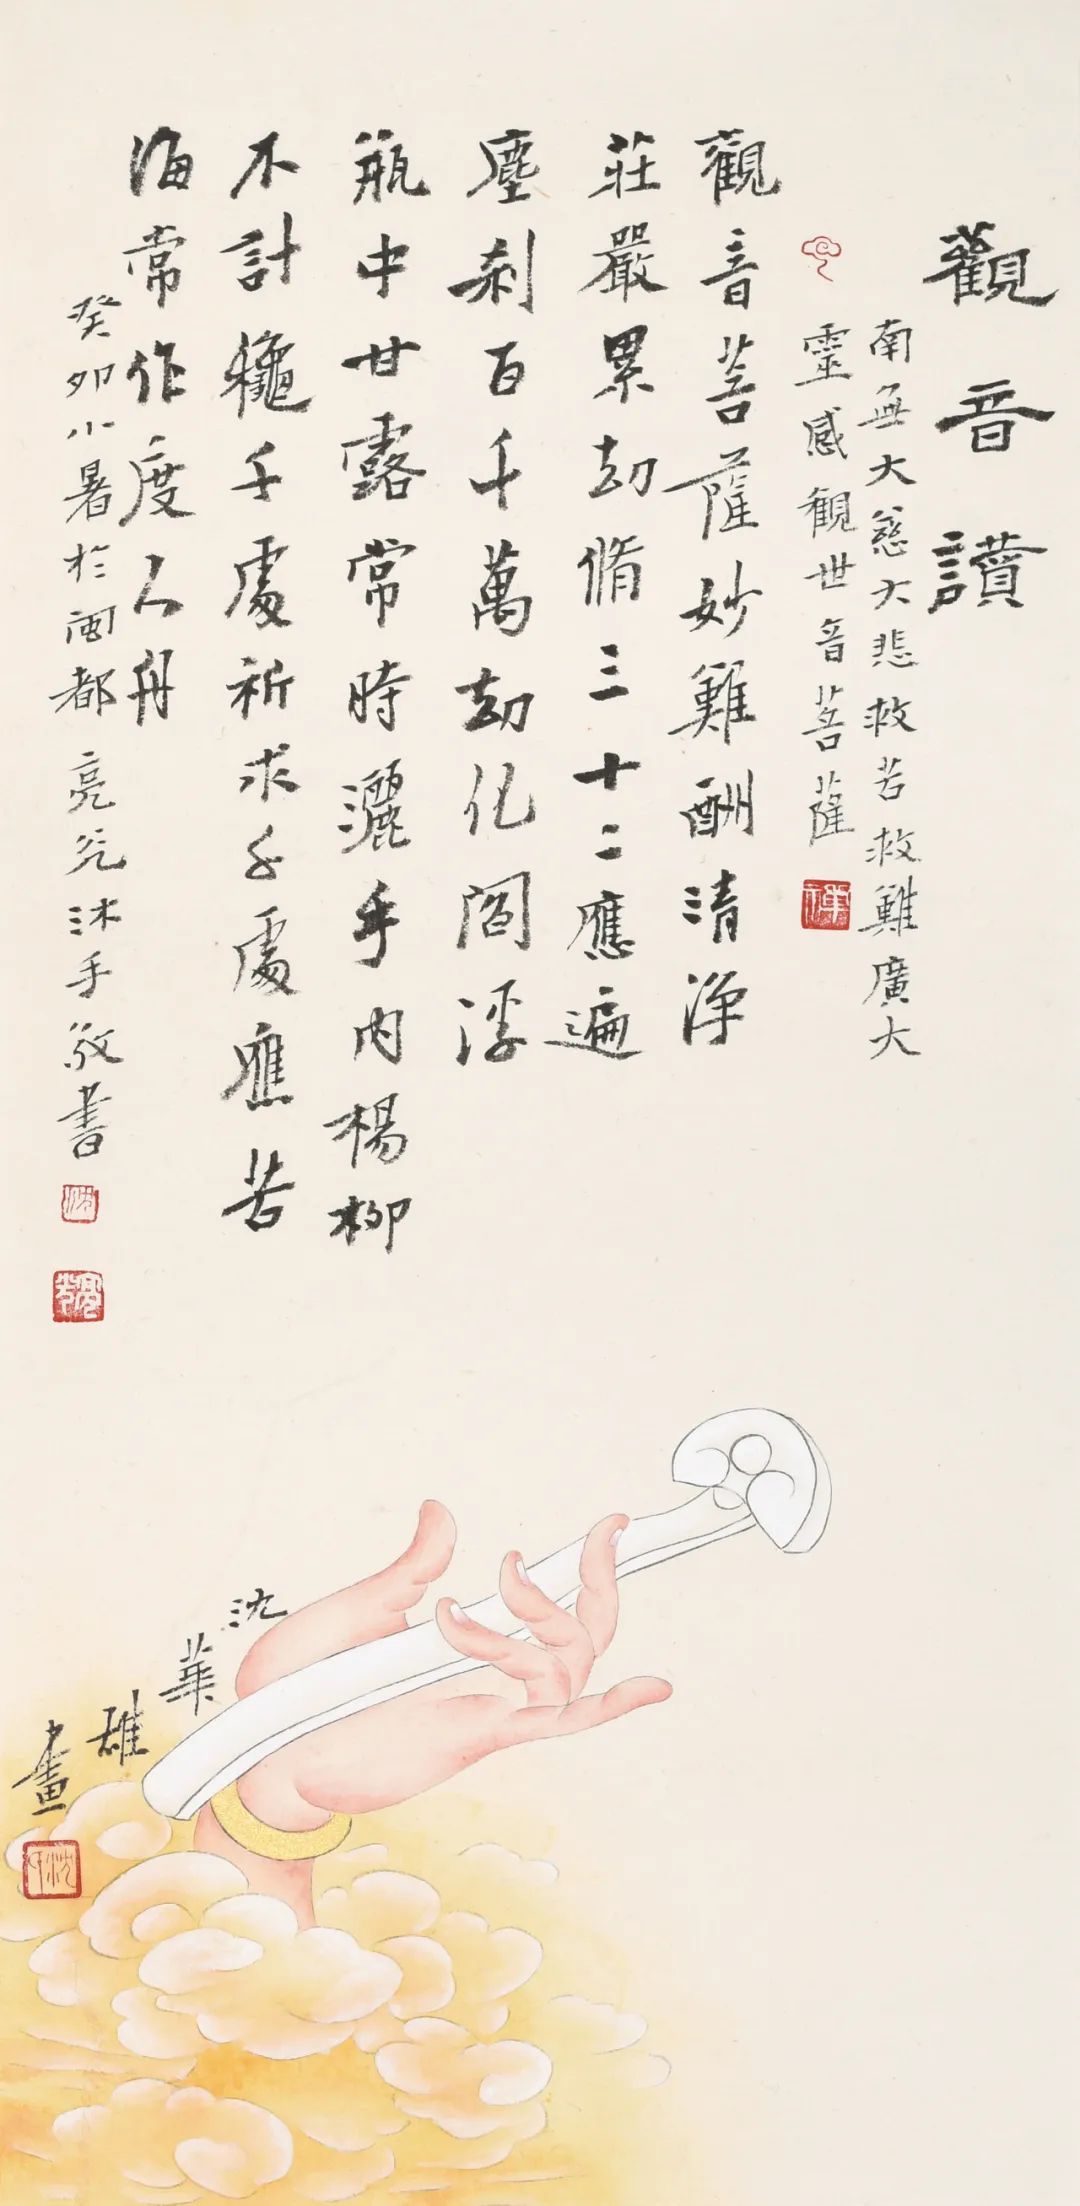 觀音讚
南無大慈大悲救苦救難廣大
靈感觀世音菩薩
觀音菩薩妙難酬清淨
莊嚴累劫脩三十二應遍
塵刹百千萬劫化閻浮
瓶中甘露常時灑手內楊柳
不計穐千處祈求千處應苦
海常作度人舟
癸卯小暑於闽都亮光沐手敬書
沈華雄畫